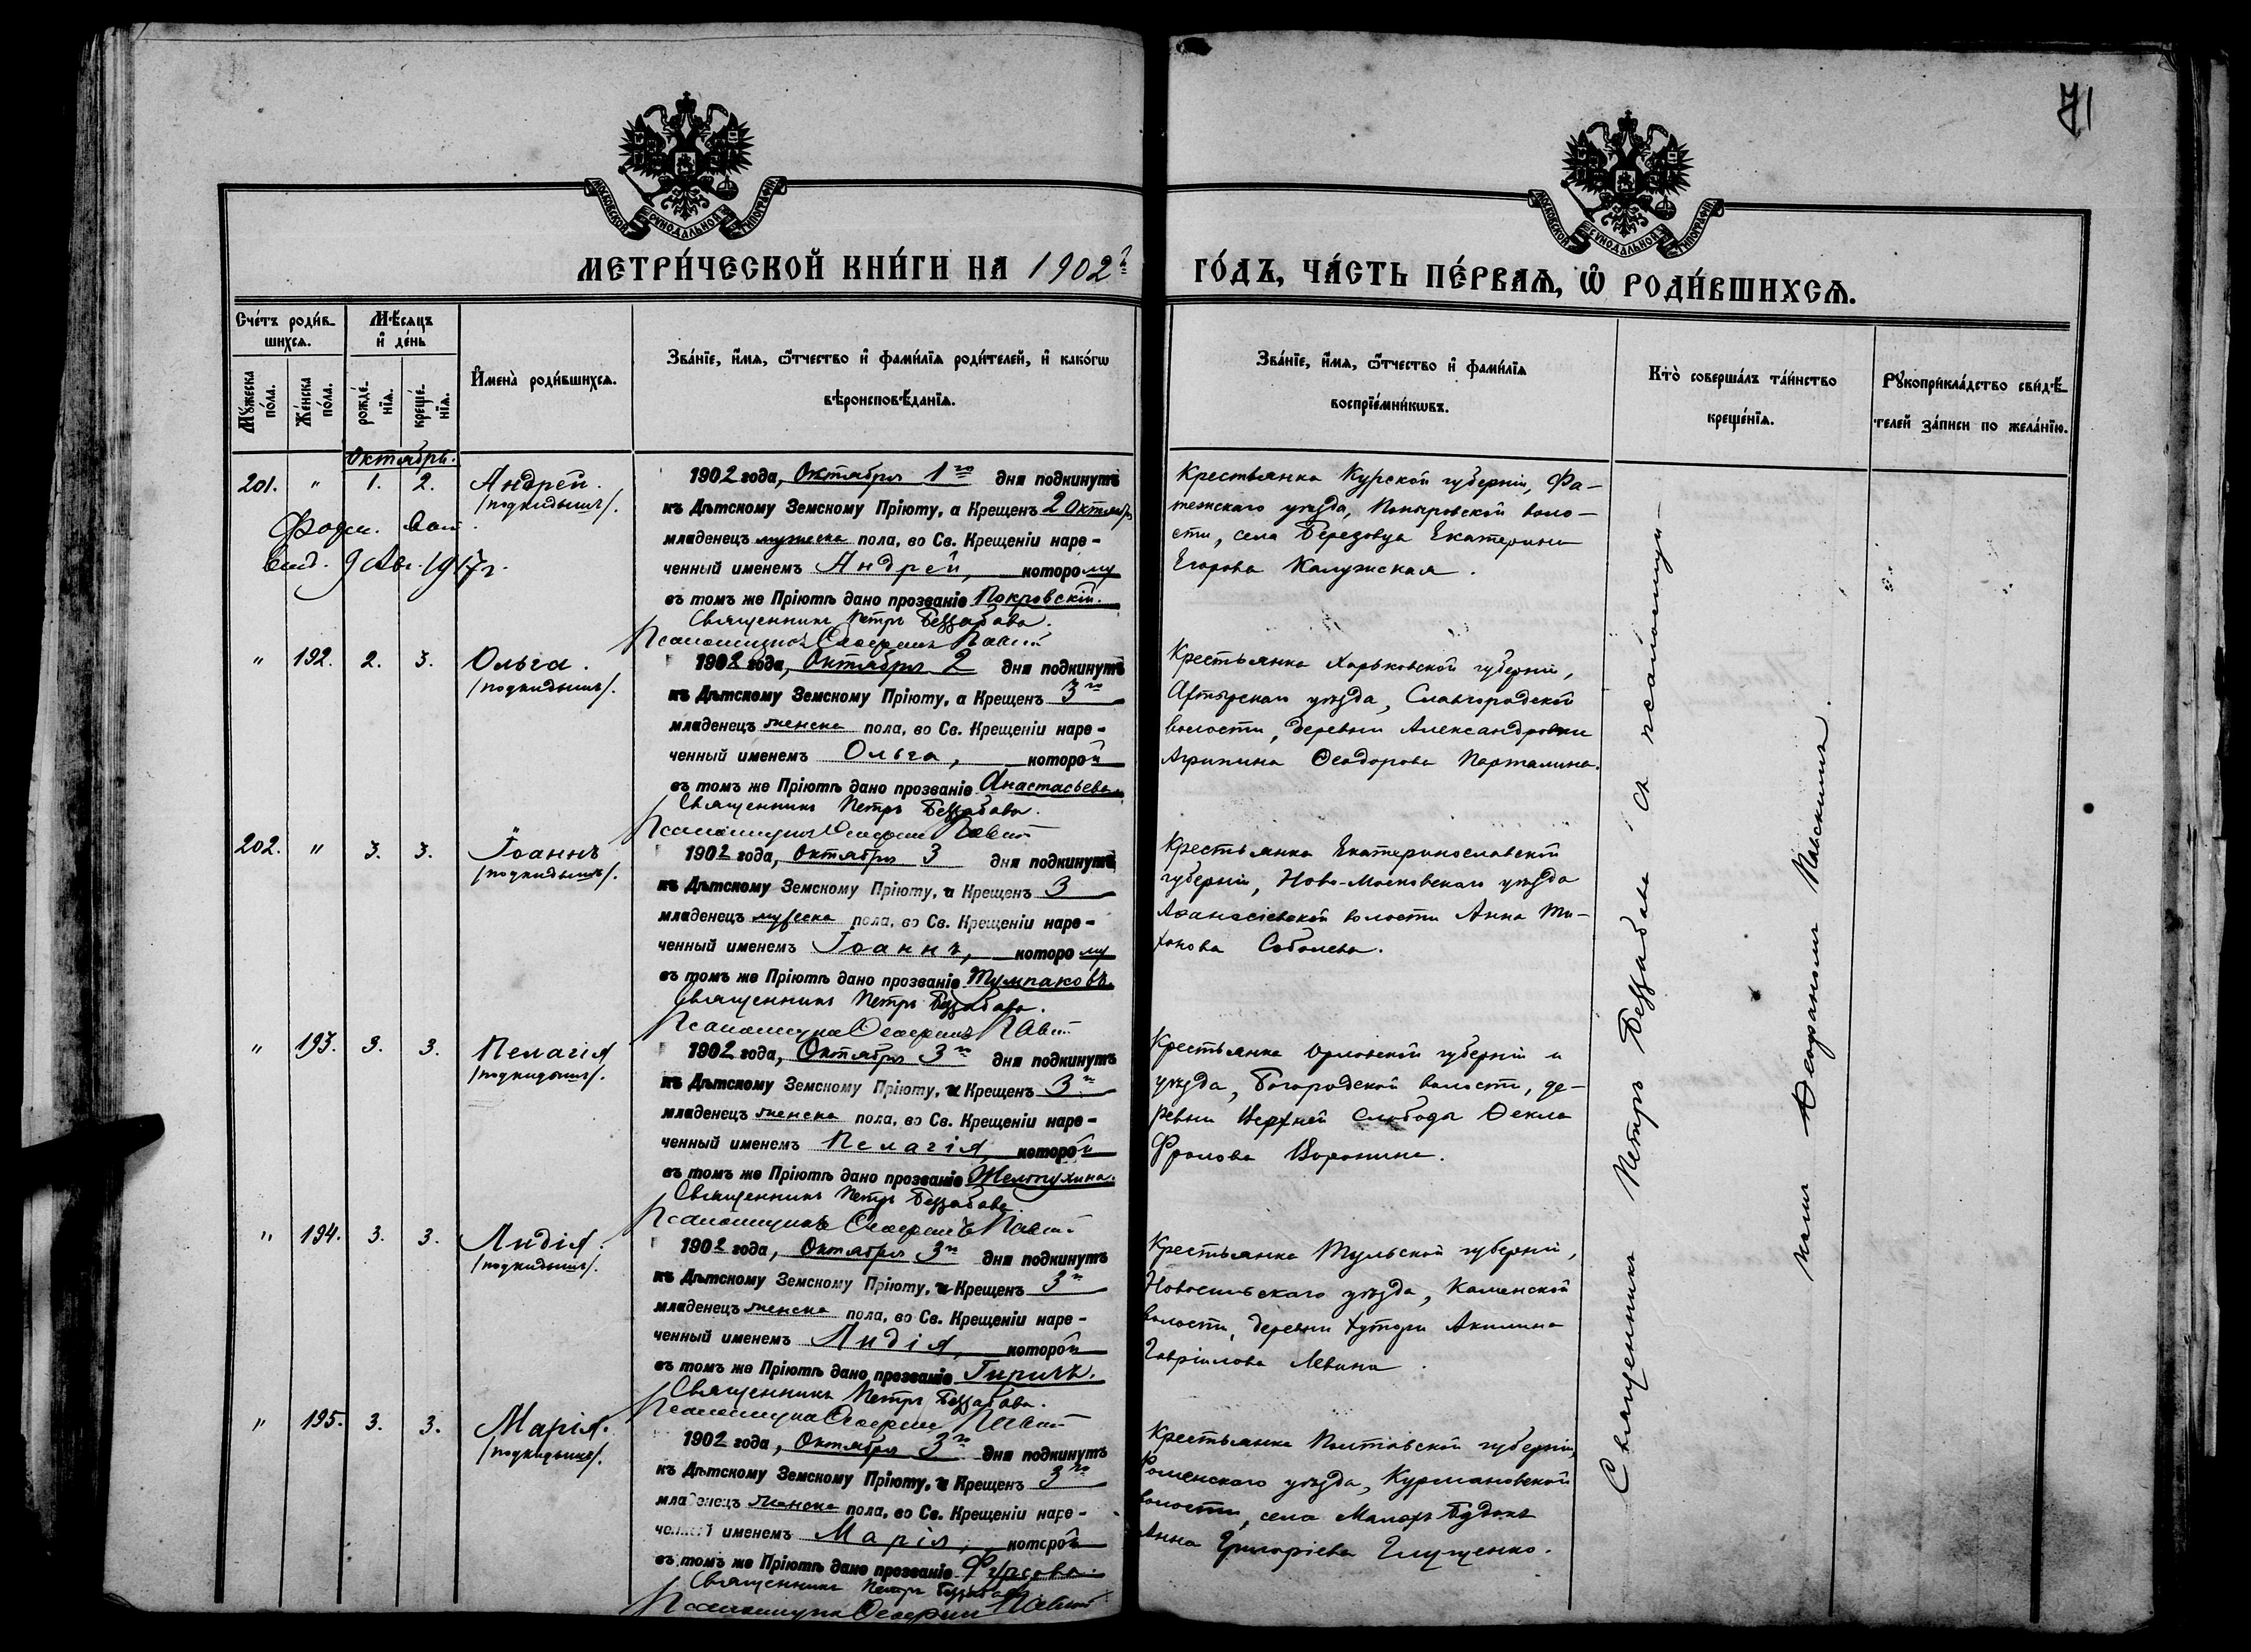 71
МОСКОВСКОЙ СУНОДАЛЬНОЙ ТИПОГРАФІИ
МОСКОВСКОЙ СУНОДАЛЬНОЙ ТИПОГРАФІИ
МЕТРИ́ЧЕСКОЙ КНИ́ГИ НА 1902й
ГО́ДЪ, ЧА́СТЬ ПЕ́РВАѦ, Ѽ РОДИ́ВШИХСѦ.
Сче́тъ роди́в-
шихсѧ.
Мꙋ́жеска по́ла.
Же́нска по́ла.
Мѣ́сяцъ
и҆ де́нь
рожде́-
нїѧ.
креще́-
нїѧ.
И҆мена̀ роди́вшихсѧ.
Зва́нїе, и҆́мѧ, ѻ҆́тчество и҆ фами́лїѧ роди́телей, и҆ како́гѡ
вѣроисповѣ́данїѧ.
Зва́нїе, и҆́мѧ, ѻ҆́тчество и҆ фами́лїѧ
воспрїе́мникѡвъ.
Кто̀ соверша́лъ та́инство
креще́нїѧ.
Рꙋкоприкла́дство свидѣ́-
телей за́писи по жела́нїю.
Октябрь.
201. " 1. 2. Андрей.
/подкидышъ/.
9 Авг. 1917 г.
1902 года, Октября 1го дня подкинутъ
къ Дѣтскому Земскому Пріюту, а Крещенъ 2 Октября
младенецъ мужеска пола, во Св. Крещеніи наре-
ченный именемъ Андрей, которому
въ томъ же Пріютѣ дано прозваніе Покровскій.
Священникъ Петръ Беззабава.
Крестьянка Курской губерніи, Фа-
тежскаго уѣзда, Поныровской воло-
сти, села Березовца Екатерина
Егорова Калужская.
" 192. 2. 3. Ольга.
/подкидышъ/.
1902 года, Октября 2 дня подкинутъ
къ Дѣтскому Земскому Пріюту, а Крещенъ 3го
младенецъ женска пола, во Св. Крещеніи наре-
ченный именемъ Ольга, которой
въ томъ же Пріютѣ дано прозваніе Анастасьева.
Священникъ Петръ Беззабава.
Крестьянка Харьковской губерніи,
уѣзда, Славгородской
волости, деревни Александровки
Агрипина Ѳеодорова
202. " 3. 3. Іоаннъ
/подкидышъ/.
1902 года, Октября 3 дня подкинутъ
къ Дѣтскому Земскому Пріюту, а Крещенъ 3
младенецъ мужеска пола, во Св. Крещеніи наре-
ченный именемъ Іоаннъ, которому
въ томъ же Пріютѣ дано прозваніе Тумпаковъ.
Священникъ Петръ Беззабава.
Крестьянка Екатеринославской
губерніи, Ново-Московскаго уѣзда
Аѳанасіевской волости Анна Ти-
хонова Соболева.
" 193. 3. 3. Пелагія
/подкидышъ/.
1902 года, Октября 3го дня подкинутъ
къ Дѣтскому Земскому Пріюту, а Крещенъ 3го
младенецъ женска пола, во Св. Крещеніи наре-
ченный именемъ Пелагія, которой
въ томъ же Пріютѣ дано прозваніе Желтухина.
Священникъ Петръ Беззабава.
Крестьянка Орловской губерніи и
уѣзда, Богородской волости, де-
ревни Верхней Слободы Ѳекла
Фролова Воронина.
" 194. 3. 3. Лидія.
/подкидышъ/.
1902 года, Октября 3го дня подкинутъ
къ Дѣтскому Земскому Пріюту, а Крещенъ 3го
младенецъ женска пола, во Св. Крещеніи наре-
ченный именемъ Лидія, которой
въ томъ же Пріютѣ дано прозваніе
Священникъ Петръ Беззабава.
Крестьянка Тульской губерніи,
Новосильскаго уѣзда, Каменской
волости, деревни Хутора Акилина
Гавріилова Левина.
" 195. 3. 3. Марія.
/подкидышъ/.
1902 года, Октября 3го дня подкинутъ
къ Дѣтскому Земскому Пріюту, а Крещенъ 3го
младенецъ женска пола, во Св. Крещеніи наре-
ченный именемъ Марія, которой
въ томъ же Пріютѣ дано прозваніе Фурсова.
Священникъ Петръ Беззабава
Крестьянка Полтавской губерніи,
Роменскаго уѣзда, Курмановской
волости, села Малыхъ Будокъ
Анна Григоріева Глущенко.
Священникъ Петръ Беззабава съ псаломщи-
комъ Ѳеофаномъ Павскимъ.